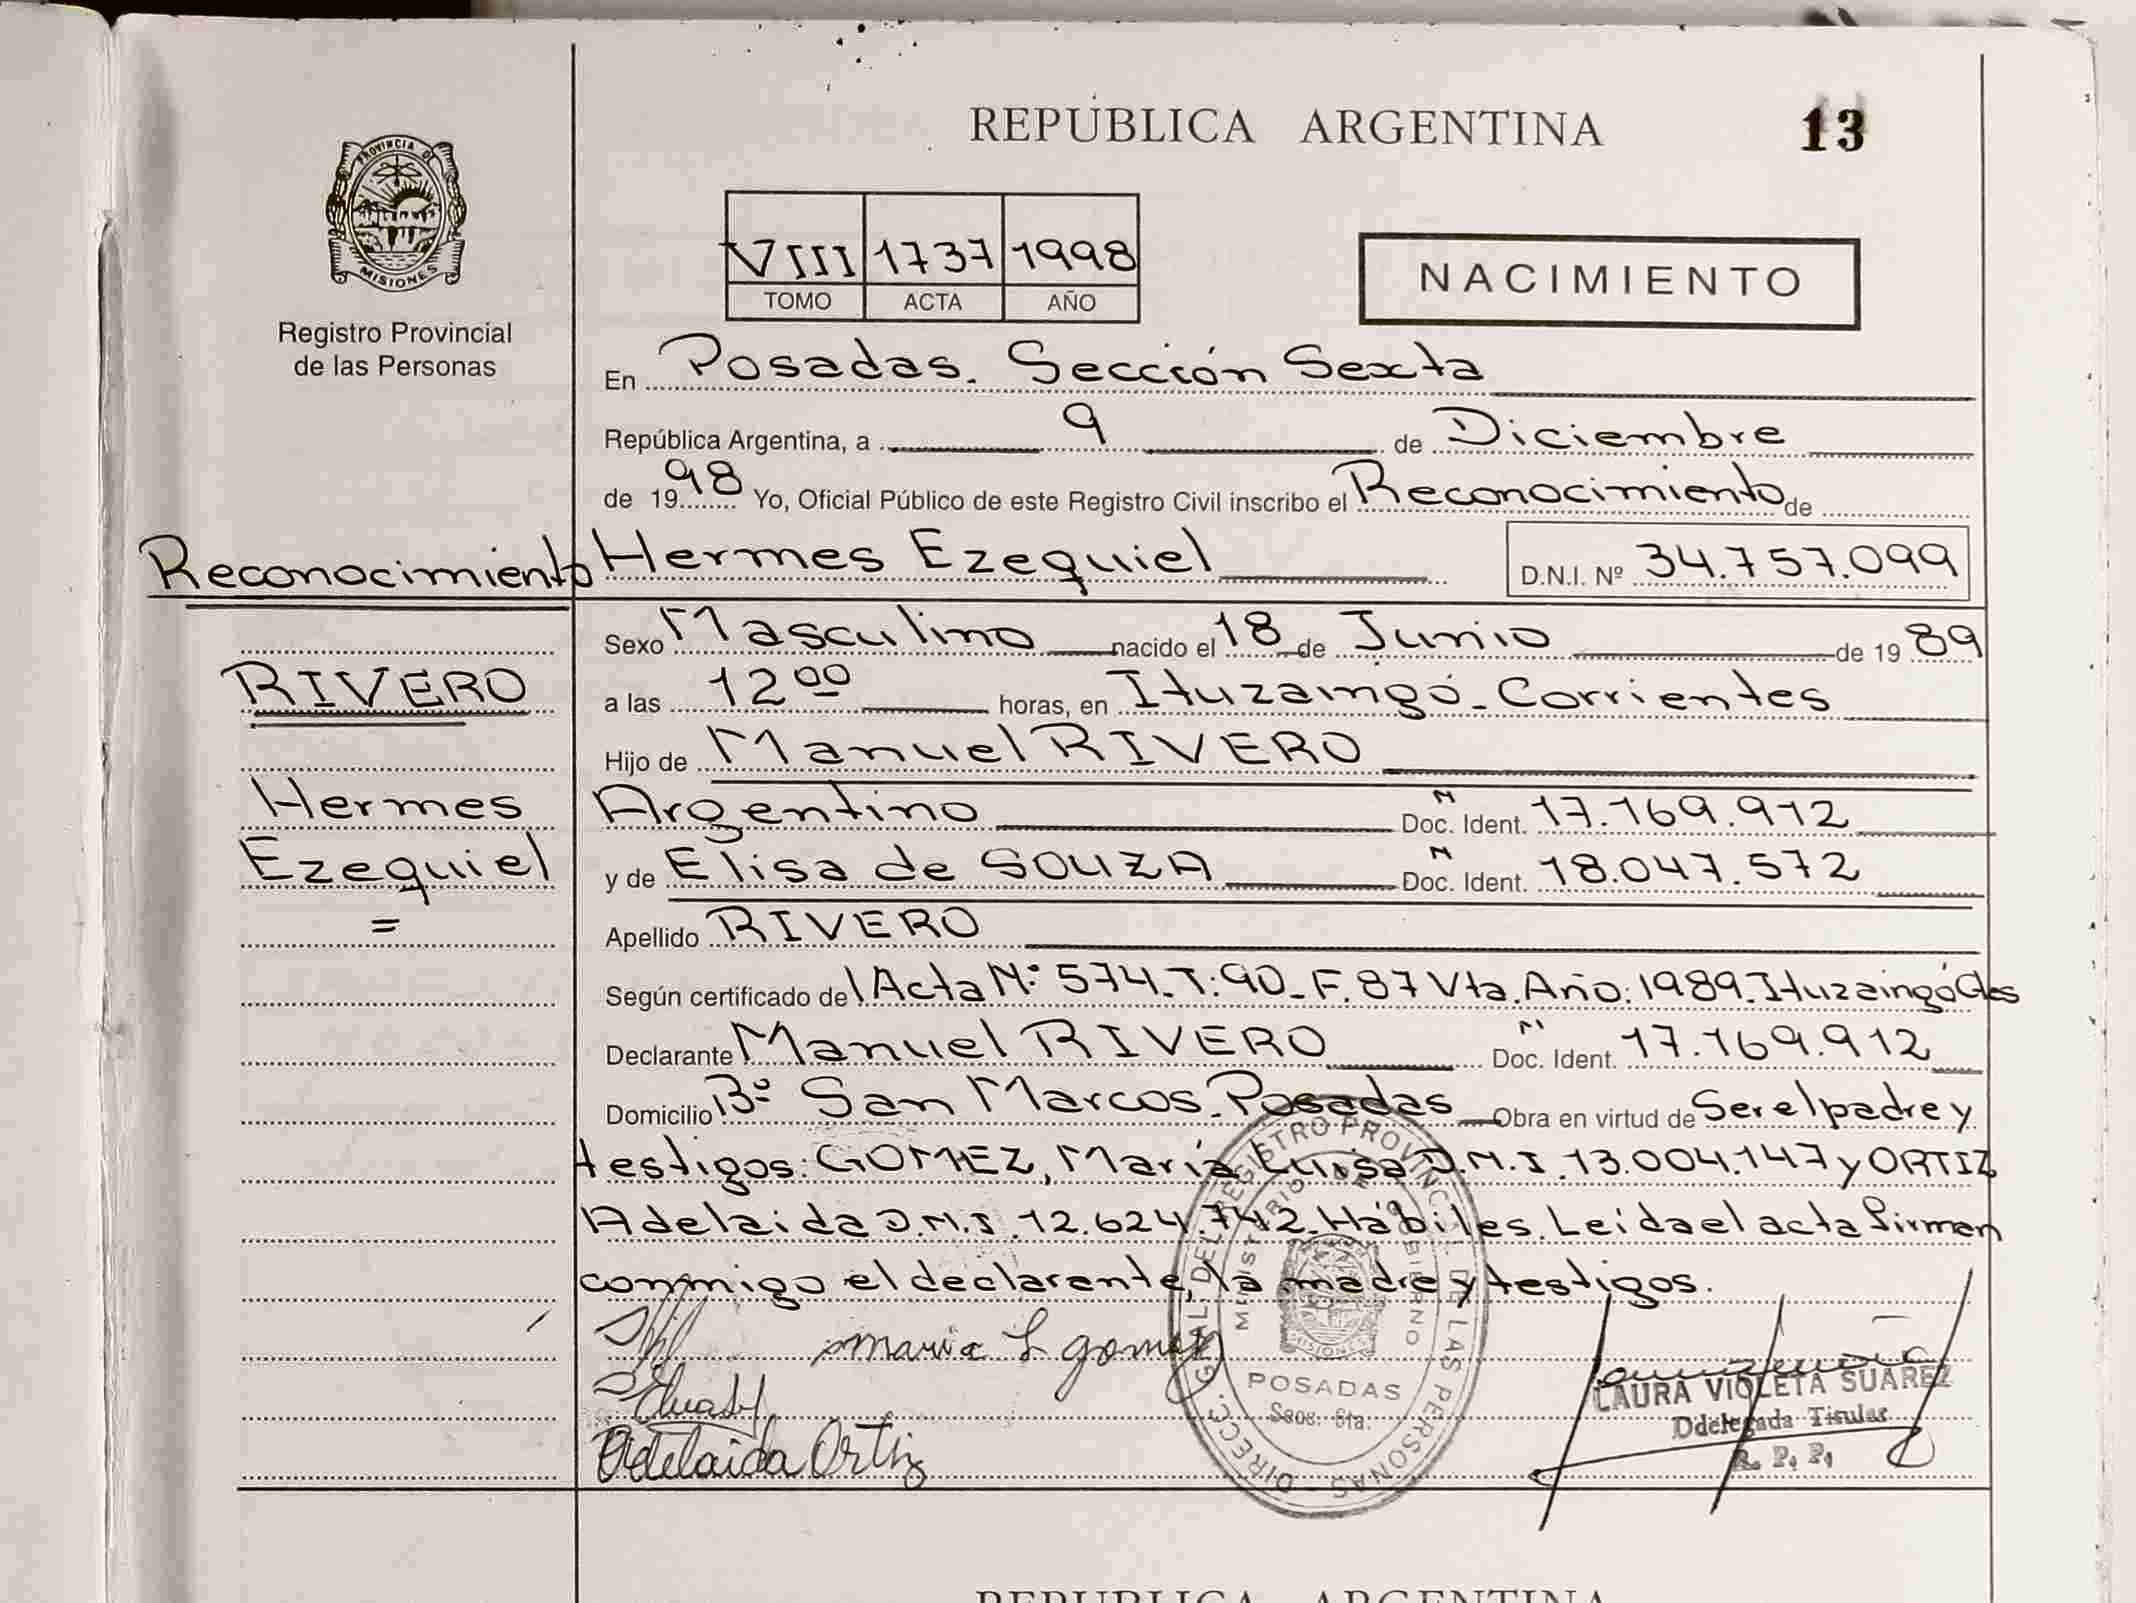 REPÚBLICA ARGENTINA 13
PROVINCIA DE MISIONES
Registro Provincial
de las Personas
VIII 1737 1998
TOMO ACTA AÑO
NACIMIENTO
En Posadas. Sección Sexta
República Argentina, a 9 de Diciembre
de 1998 Yo, Oficial Público de este Registro Civil inscribo el Reconocimiento de
Reconocimiento
Hermes Ezequiel D.N.I. Nº 34.757.099
RIVERO
Hermes
Ezequiel
=
Sexo Masculino nacido el 18 de Junio de 1989
a las 12 00 horas, en Ituzaingó - Corrientes
Hijo de Manuel RIVERO
Argentino Doc. Ident. N 17.169.912
y de Elisa de SOUZA Doc. Ident. N 18.047.572
Apellido RIVERO
Según certificado del Acta N: 574. T: 90 - F. 87 Vta. Año: 1989. Ituzaingó Ctes
Declarante Manuel RIVERO Doc. Ident. N 17.169.912
Domicilio Bº San Marcos - Posadas Obra en virtud de Ser el padre y
testigos: GOMEZ, María Luisa D.N.I. 13.004.147 y ORTIZ
Adelaida D.N.I. 12.624.742. Hábiles. Leída el acta firman
conmigo el declarante, la madre y testigos.
maria L gomez
Adelaida Ortiz
DIRECC. GRAL DEL REGISTRO PROVINCIAL DE LAS PERSONAS
MINISTERIO DE GOBIERNO
MISIONES
POSADAS
Secc. 6ta.
LAURA VIOLETA SUAREZ
Ddelegada Titular
R. P. P.
REPÚBLICA ARGENTINA